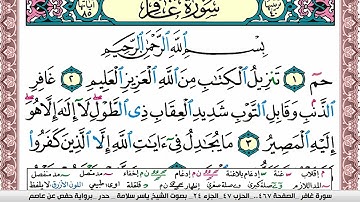 سُورَةُ غَافِرٍ
بِسْمِ ٱللَّهِ ٱلرَّحْمَٰنِ ٱلرَّحِيمِ
حمٓ ١ تَنزِيلُ ٱلْكِتَٰبِ مِنَ ٱللَّهِ ٱلْعَزِيزِ ٱلْعَلِيمِ ٢ غَافِرِ
ٱلذَّنۢبِ وَقَابِلِ ٱلتَّوْبِ شَدِيدِ ٱلْعِقَابِ ذِى ٱلطَّوْلِ لَآ إِلَٰهَ إِلَّا هُوَ
إِلَيْهِ ٱلْمَصِيرُ ٣ مَا يُجَٰدِلُ فِىٓ ءَايَٰتِ ٱللَّهِ إِلَّا ٱلَّذِينَ كَفَرُوا۟
سورة غافر _ الصفحة ٤٦٧ _ الحزب ٤٧ _ الجزء ٢٤ _ بصوت الشيخ ياسر سلامة _ حدر _ برواية حفص عن عاصم